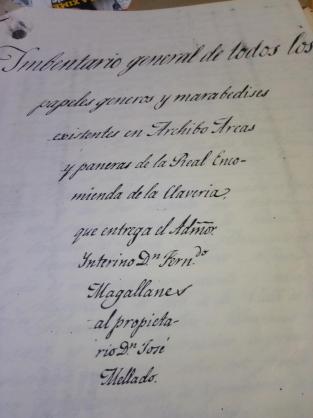 Imbentario general de todos los
papeles generos y marabedises
existentes en Archibo Arcas
y paneras de la Real Enco-
mienda de la Claveria,
que entrega el Admor.
Interino Dn. Ferndo
Magallanes
al propieta-
rio Dn. José
Mellado.